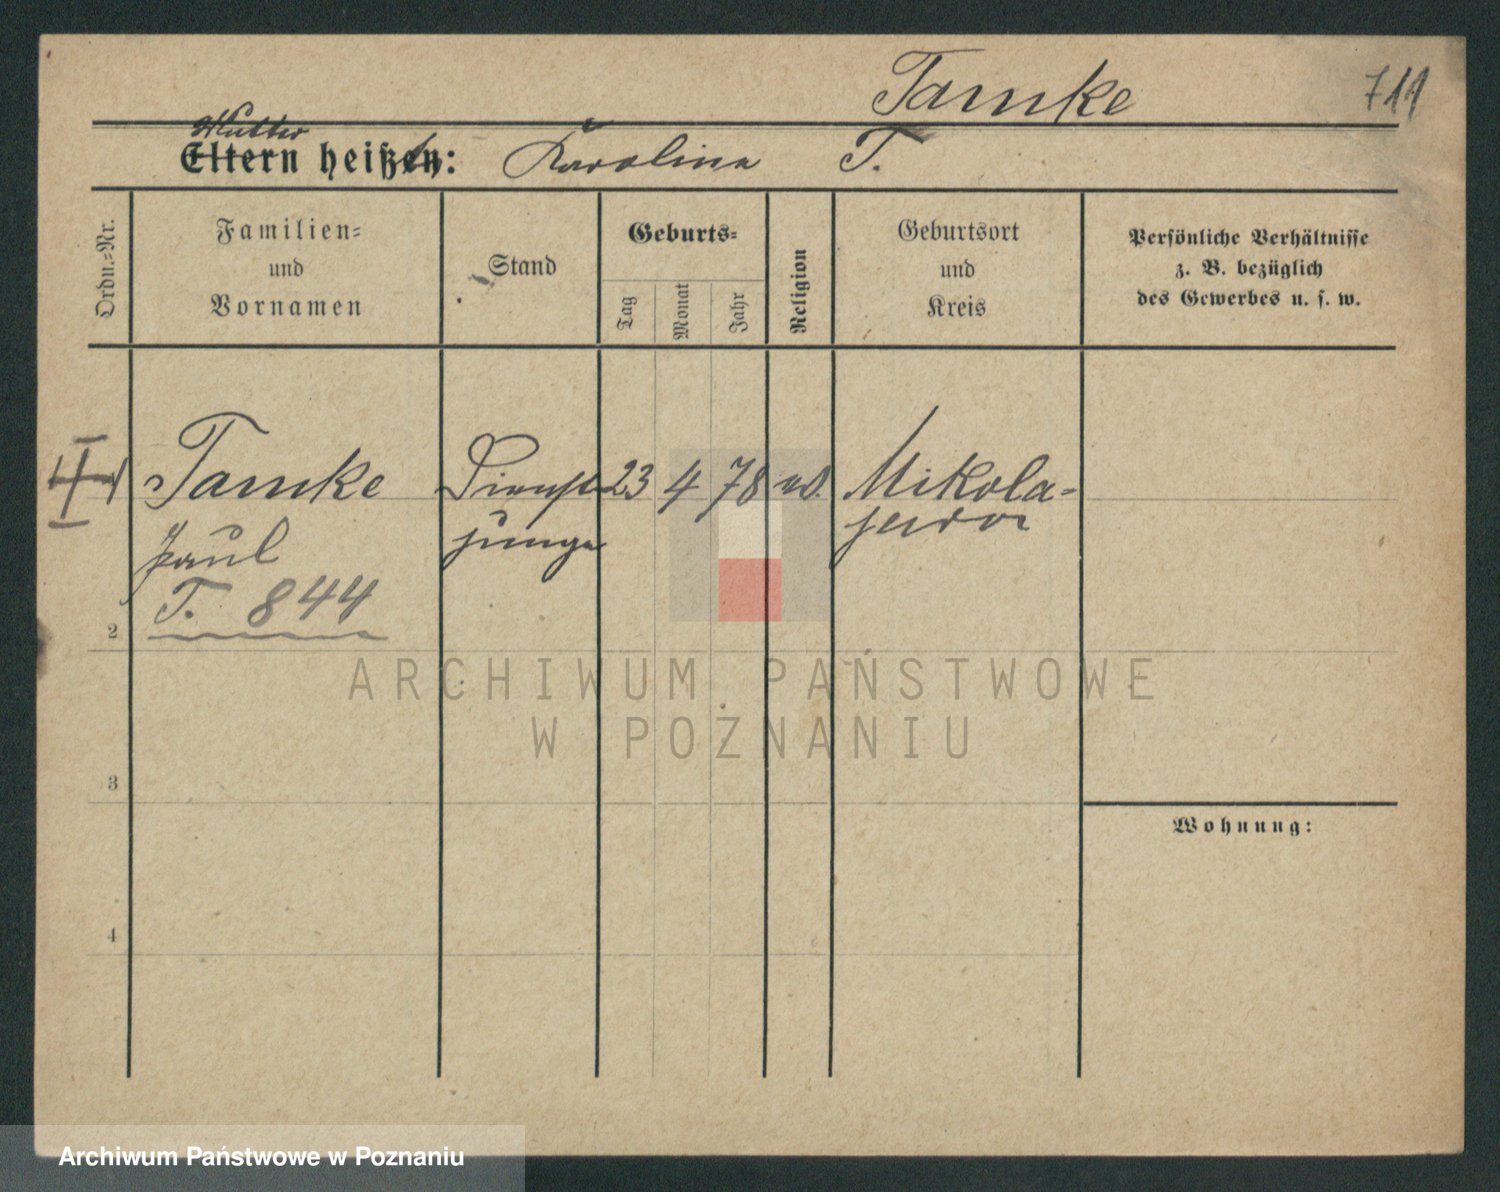 Tamke
711
Mutter
Eltern heißen: Karolina T.
Ordn.-Nr.
Familien-
und
Vornamen
Stand
Geburts-
Tag
Monat
Jahr
Religion
Geburtsort
und
Kreis
Persönliche Verhältnisse
z. B. bezüglich
des Gewerbes u. s. w.
Tamke Dienst 23 4 78 Mikola-
Paul junge
T. 844
2
3
4
Wohnung:
ARCHIWUM PAŃSTWOWE
W POZNANIU
Archiwum Państwowe w Poznaniu